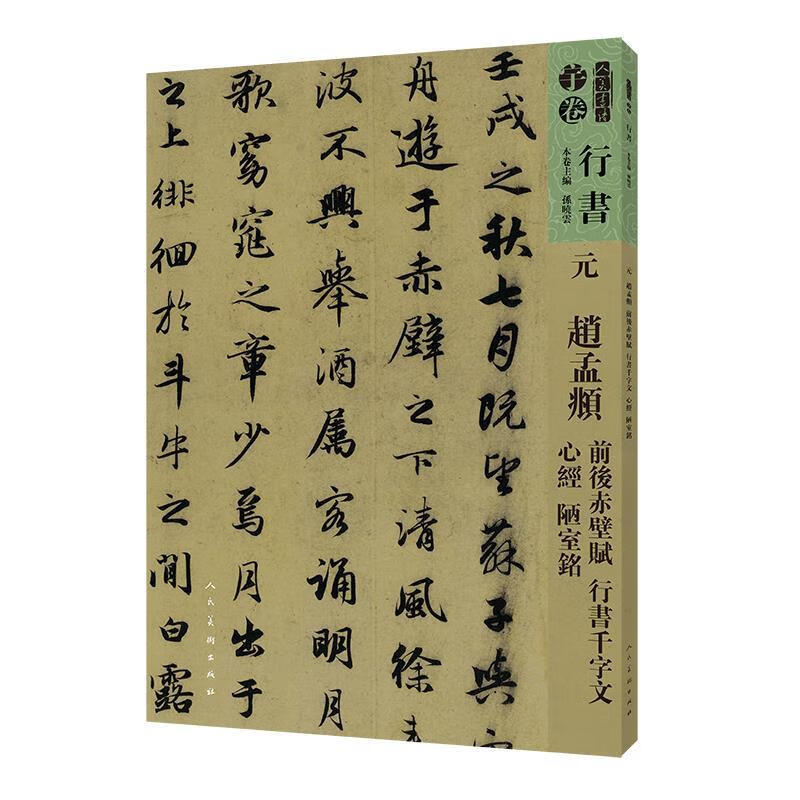 人美書譜
宇卷
行書
本卷主編 孫曉雲
元 趙孟頫
前後赤壁賦 行書千字文
心經 陋室銘
壬戌之秋七月既望蘇子與
舟遊于赤壁之下清風徐
波不興舉酒属客誦明月
歌窈窕之章少焉月出于
之上徘徊於斗牛之間白露
人民美術出版社
行書
元 趙孟頫 前後赤壁賦 行書千字文 心經 陋室銘
人民美術出版社